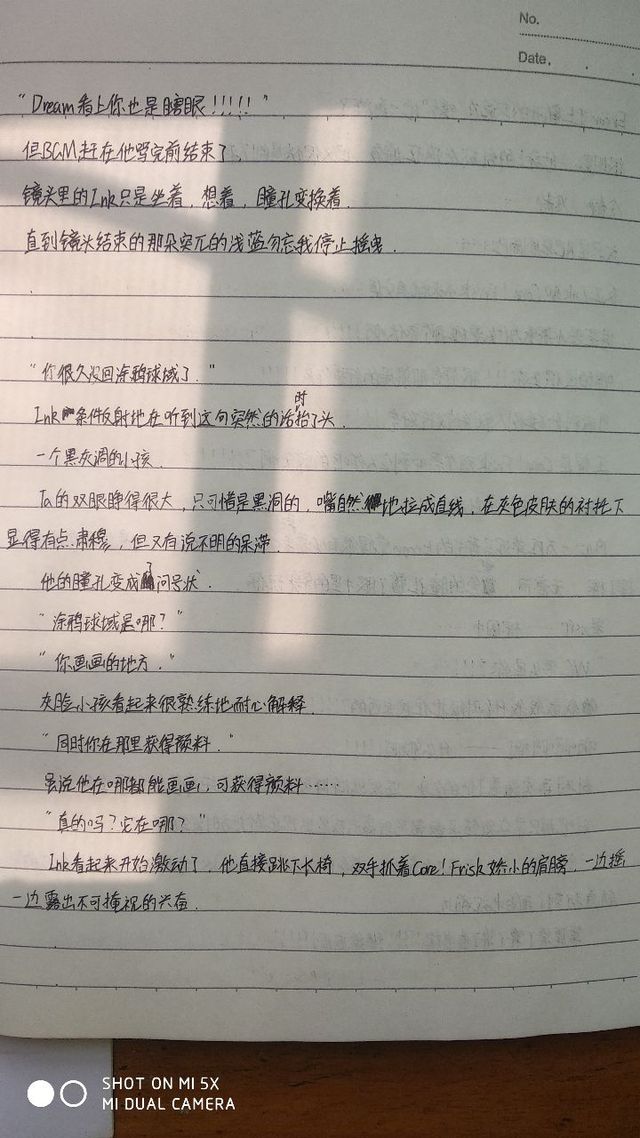 No.
Date.
"Dream看上你也是瞎眼!!!!!"
但BGM赶在他骂完前结束了.
镜头里的Ink只是坐着,想着,瞳孔变换着.
直到镜头结束的那朵突兀的浅蓝勿忘我停止摇曳.
"你很久没回涂鸦球域了."
Ink条件反射地在听到这句突然的话时抬了头.
一个黑灰调的小孩.
Ta的双眼睁得很大,只可惜是黑洞的,嘴自然地拉成直线,在灰色皮肤的衬托下
显得有点肃穆,但又有说不明的呆滞.
他的瞳孔变成了问号状.
"涂鸦球域是哪?"
"你画画的地方."
灰脸小孩看起来很熟练地耐心解释.
"同时你在那里获得颜料."
虽说他在哪都能画画,可获得颜料……
"真的吗?它在哪?"
Ink看起来开始激动了,他直接跳下长椅,双手抓着Core!Frisk娇小的肩膀,一边摇
一边露出不可掩视的兴奋.
SHOT ON MI 5X
MI DUAL CAMERA